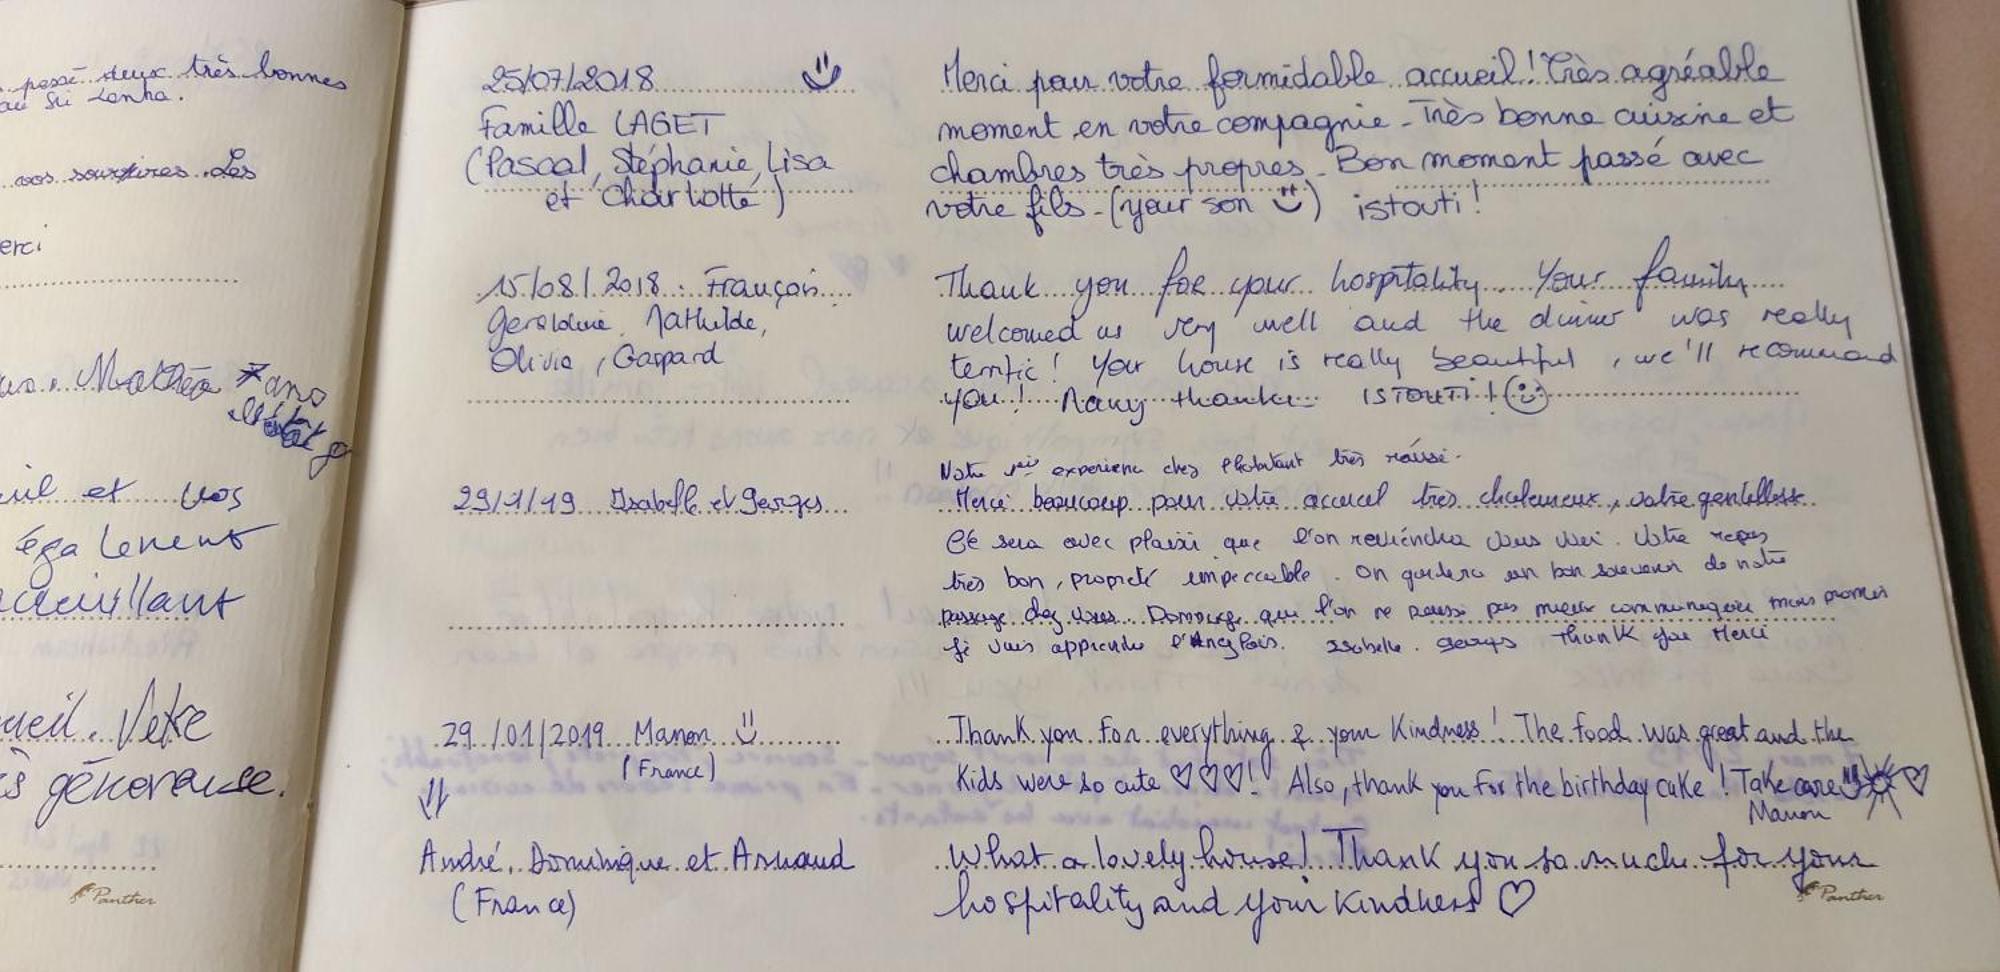 passé deux très bonnes
au Sri Lanka.
vos sourires. Les
erci
Mathéa 7 ans
et vos
également
accueillant
ueil. Votre
s généreuse.
Panther
25/07/2018
Famille LAGET
(Pascal, Stéphanie, Lisa
et Charlotte)
Merci pour votre formidable accueil! Très agréable
moment en votre compagnie - Très bonne cuisine et
chambres très propres - Bon moment passé avec
votre fils - (your son ☺) istouti!
15/08/2018 : François
Géraldine, Mathilde,
Olivia, Gaspard
Thank you for your hospitality. Your family
welcomed us very well and the dinner was really
terrific! Your house is really beautiful, we'll recommand
you! Many thanks ISTOUTI! ☺
29/1/19 Isabelle et Georges
Notre 1ère experience chez l'habitant très réussie.
Merci beaucoup pour votre accueil très chaleureux, votre gentillesse
Ce sera avec plaisir que l'on reviendra vous voir. Votre repas
très bon, propreté impeccable. On gardera un bon souvenir de notre
passage chez vous. Dommage que l'on ne puisse pas mieux communiquer mais promis
je vais apprendre l'Anglais. Isabelle. Georges Thank you Merci
29/01/2019 Manon
(France)
Thank you for everything & your kindness! The food was great and the
kids were so cute ♡♡♡! Also, thank you for the birthday cake! Take care ♡
Manon
André, Dominique et Arnaud
(France)
What a lovely house! Thank you so much for your
hospitality and your kindness ♡
Panther